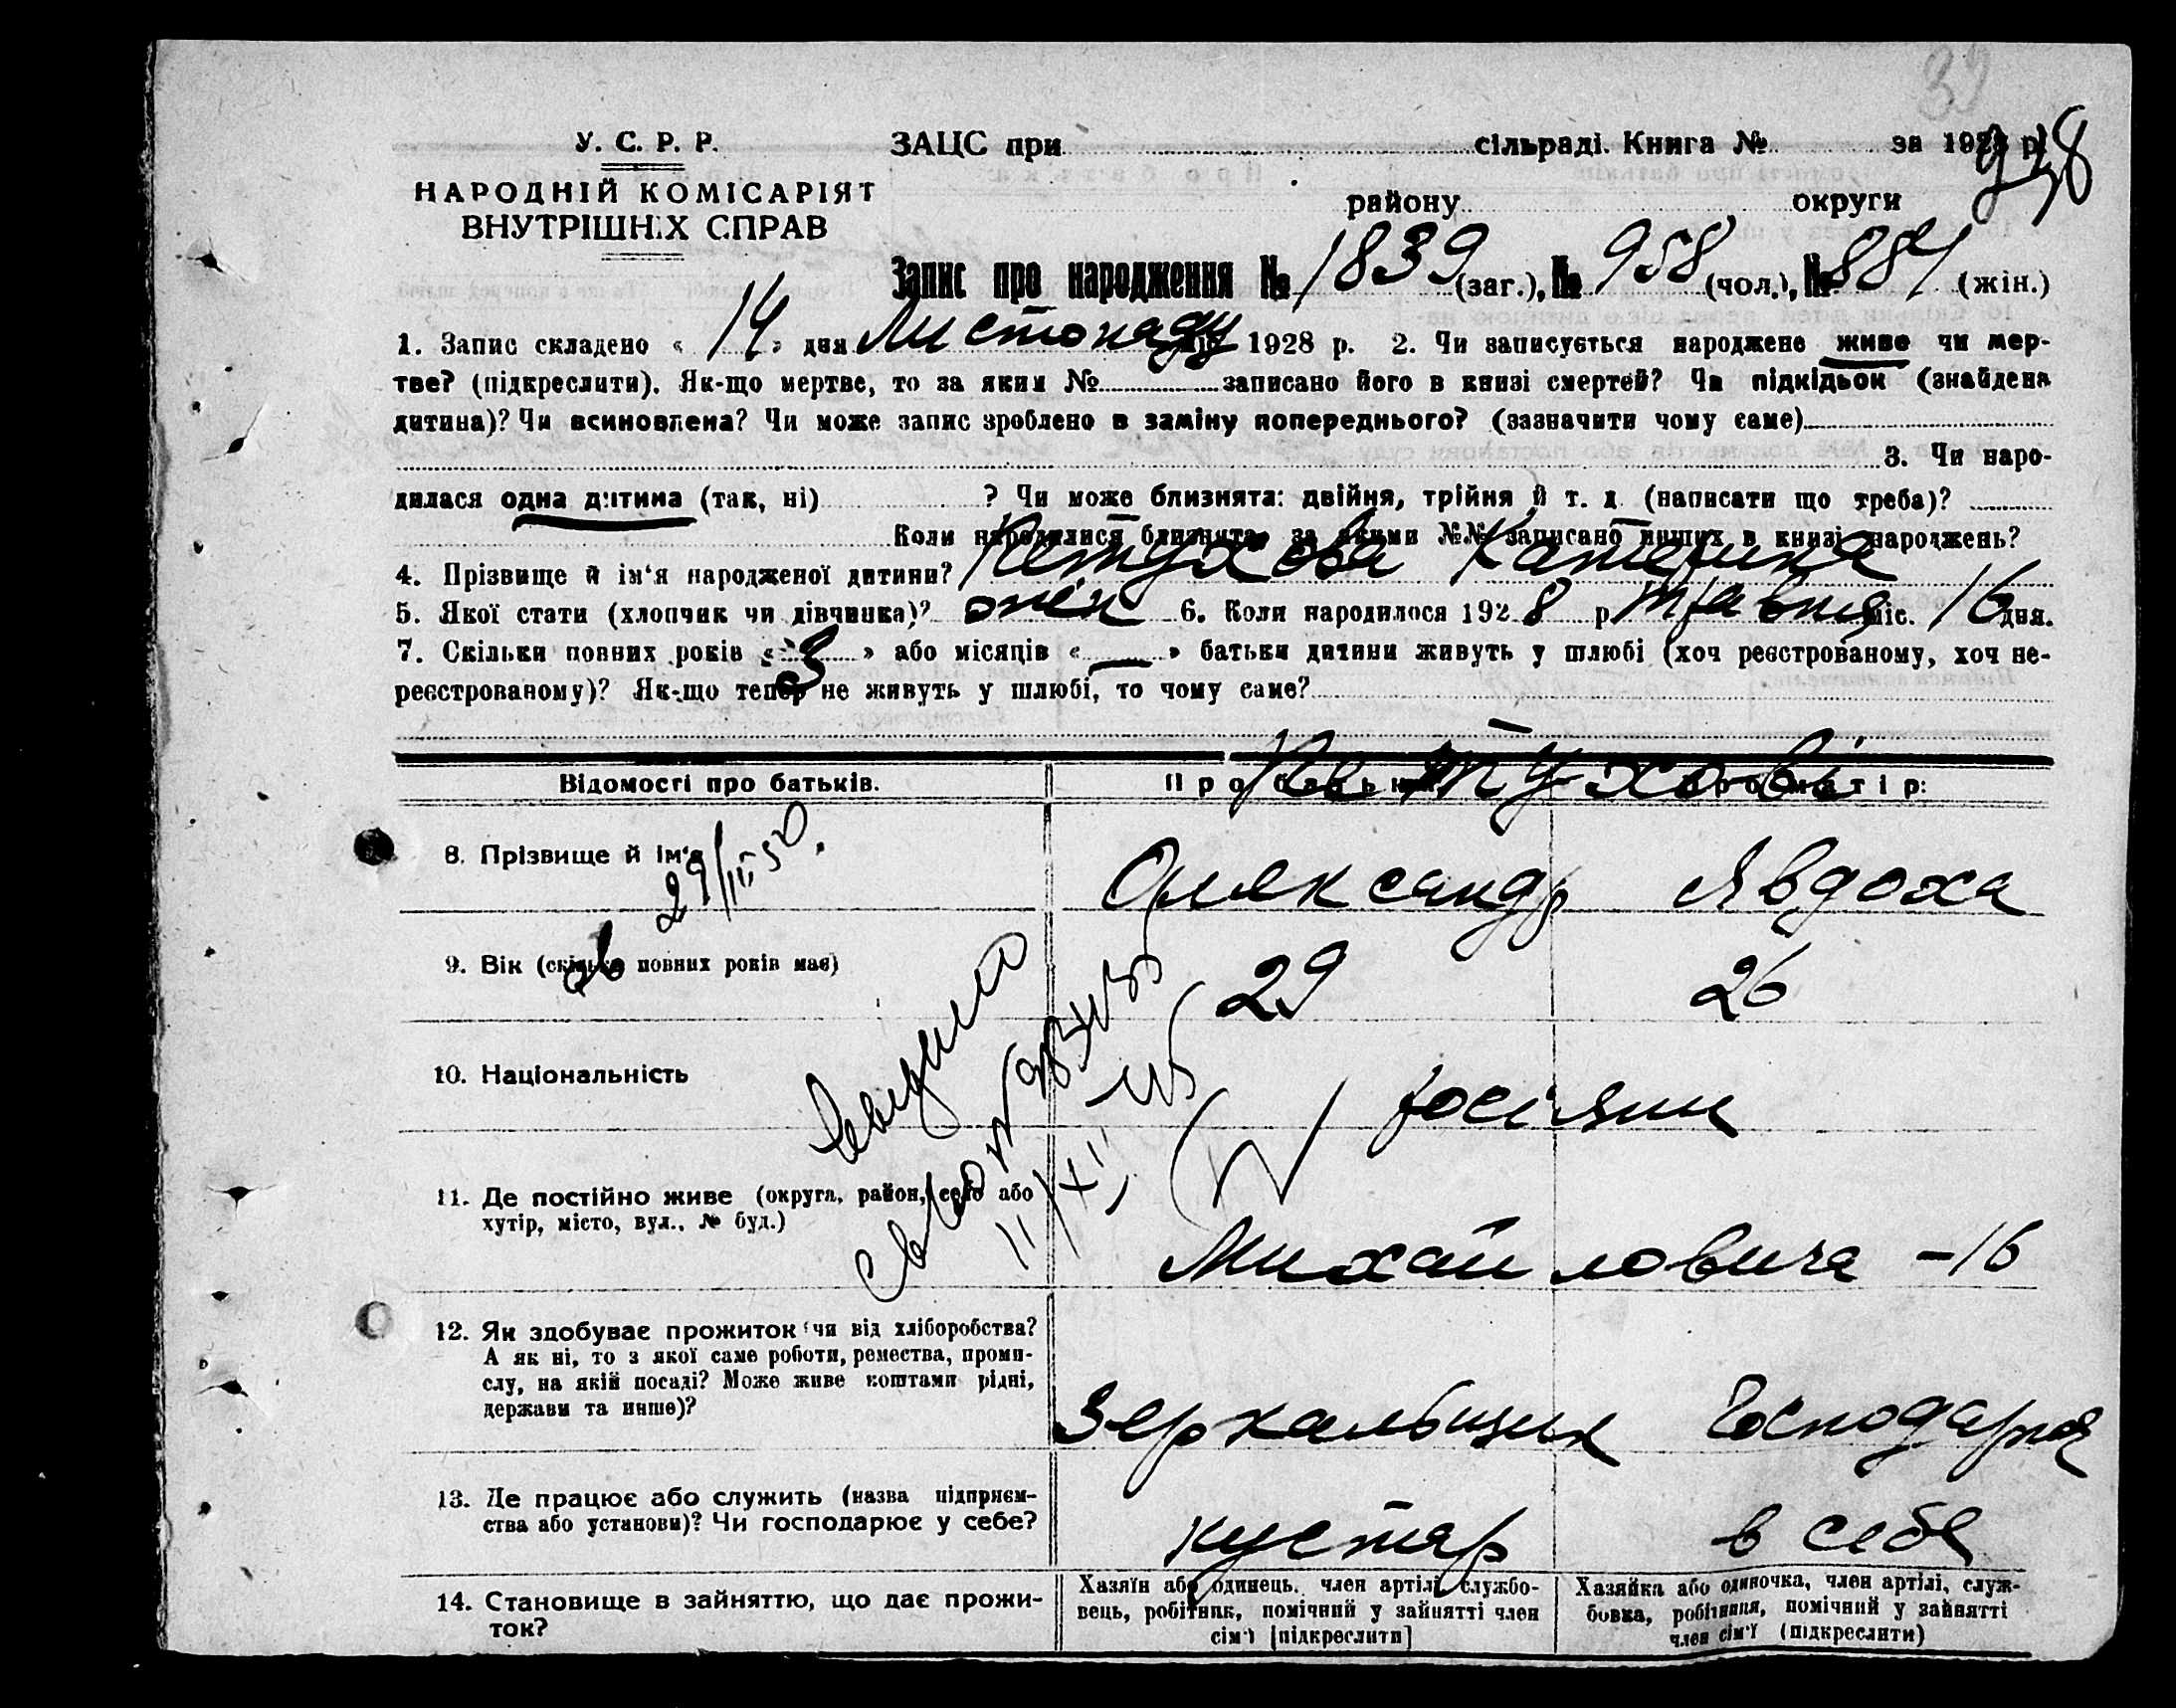 39
У. С. Р. Р. ЗАЦС при сільраді. Книга № за 1928 р.
938
НАРОДНІЙ КОМІСАРІЯТ
ВНУТРІШНІХ СПРАВ
району округи
Запис про народження № 1839 (заг.), № 958 (чол.), № 881 (жін.)
1. Запис складено « 14 » дня Листопаду 1928 р. 2. Чи записується народжене живе чи мер-
тве? (підкреслити). Як-що мертве, то за яким № записано його в книзі смертей? Чи підкідьок (знайдена
дитина)? Чи всиновлена? Чи може запис зроблено в заміну попереднього? (зазначити чому саме)
3. Чи наро-
дилася одна дитина (так, ні) ? Чи може близнята: двійня, трійня й т. д. (написати що треба)?
Коли народилися близнята, за якими №№ записано инших в книзі народжень?
4. Прізвище й ім‘я народженої дитини? Петухова Катерина
5. Якої стати (хлопчик чи дівчинка)? жін 6. Коли народилося 1928 р травня міс. 16 дня.
7. Скільки повних років « 3 » або місяців « — » батьки дитини живуть у шлюбі (хоч реєстрованому, хоч не-
реєстрованому)? Як-що тепер не живуть у шлюбі, то чому саме?
Відомості про батьків. Про батька: Про матір:
Петухові
8. Прізвище й ім‘я Олександр Явдоха
29/III 50.
9. Вік (скільки повних років має) 29 26
10. Національність росіяни
11. Де постійно живе (округа, район, село або
хутір, місто, вул., № буд.)
Михайловича - 16
12. Як здобуває прожиток чи від хліборобства?
А як ні, то з якої саме роботи, ремества, проми-
слу, на якій посаді? Може живе коштами рідні,
держави та инше)?
Зеркальщик Господарня
13. Де працює або служить (назва підприєм-
ства або установи)? Чи господарює у себе?
кустар в себе
14. Становище в зайняттю, що дає прожи-
ток?
Хазяїн або одинець, член артілі, службо-
вець, робітник, помічний у зайнятті член
сім‘ї [підкреслити]
Хазяйка або одиночка, член артілі, служ-
бовка, робітниця, помічний у зайнятті
член сім‘ї (підкреслити)